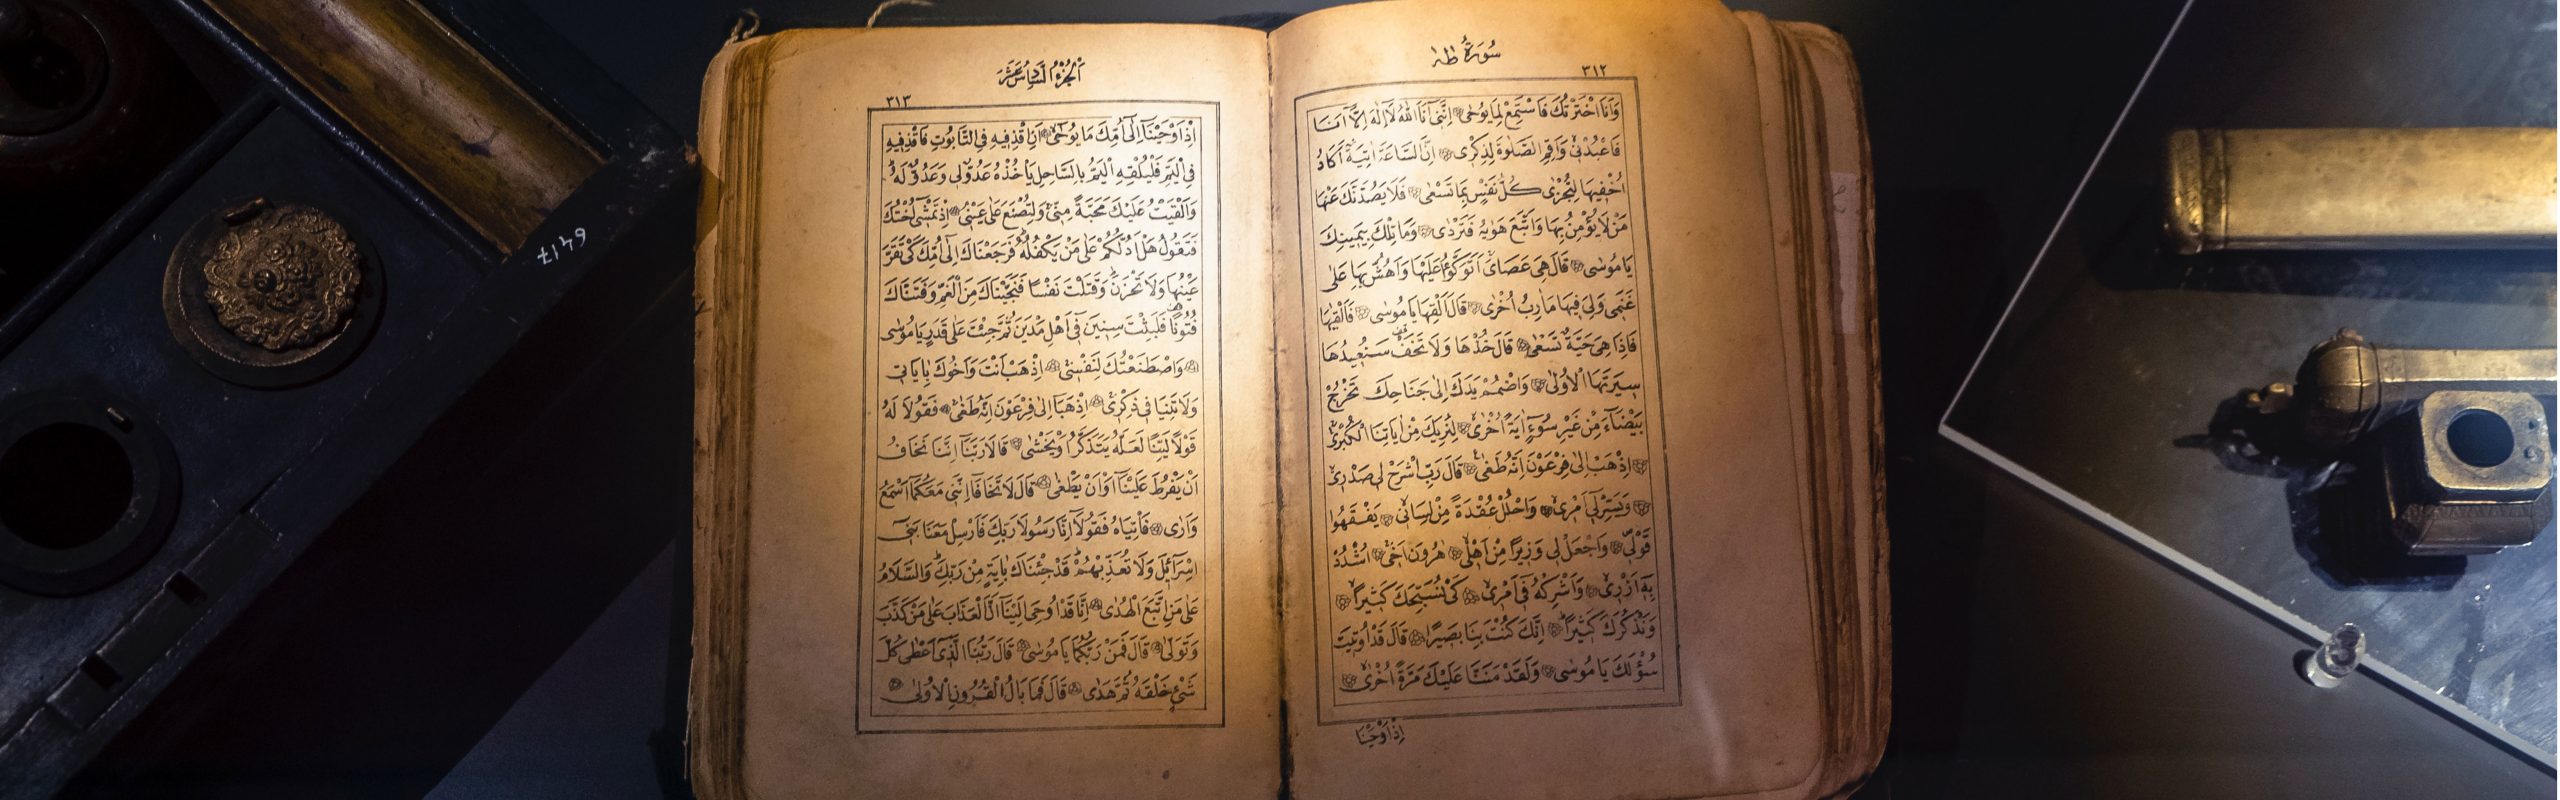 سُورَةُ طٰهٰ
٣١٢
وَاَنَا اخْتَرْتُكَ فَاسْتَمِعْ لِمَا يُوحٰى ۞ اِنَّنٖى اَنَا اللّٰهُ لَا اِلٰهَ اِلَّا اَنَا
فَاعْبُدْنٖى وَاَقِمِ الصَّلٰوةَ لِذِكْرٖى ۞ اِنَّ السَّاعَةَ اٰتِيَةٌ اَكَادُ
اُخْفٖيهَا لِتُجْزٰى كُلُّ نَفْسٍ بِمَا تَسْعٰى ۞ فَلَا يَصُدَّنَّكَ عَنْهَا
مَنْ لَا يُؤْمِنُ بِهَا وَاتَّبَعَ هَوٰيهُ فَتَرْدٰى ۞ وَمَا تِلْكَ بِيَمٖينِكَ
يَا مُوسٰى ۞ قَالَ هِىَ عَصَاىَ اَتَوَكَّؤُا عَلَيْهَا وَاَهُشُّ بِهَا عَلٰى
غَنَمٖى وَلِىَ فٖيهَا مَاٰرِبُ اُخْرٰى ۞ قَالَ اَلْقِهَا يَا مُوسٰى ۞ فَاَلْقٰيهَا
فَاِذَا هِىَ حَيَّةٌ تَسْعٰى ۞ قَالَ خُذْهَا وَلَا تَخَفْ سَنُعٖيدُهَا
سٖيرَتَهَا الْاُولٰى ۞ وَاضْمُمْ يَدَكَ اِلٰى جَنَاحِكَ تَخْرُجْ
بَيْضَٓاءَ مِنْ غَيْرِ سُٓوءٍ اٰيَةً اُخْرٰى ۞ لِنُرِيَكَ مِنْ اٰيَاتِنَا الْكُبْرٰى
۞ اِذْهَبْ اِلٰى فِرْعَوْنَ اِنَّهُ طَغٰى ۞ قَالَ رَبِّ اشْرَحْ لٖى صَدْرٖى
۞ وَيَسِّرْ لٖٓى اَمْرٖى ۞ وَاحْلُلْ عُقْدَةً مِنْ لِسَانٖى ۞ يَفْقَهُوا
قَوْلٖى ۞ وَاجْعَلْ لٖى وَزٖيرًا مِنْ اَهْلٖى ۞ هٰرُونَ اَخٖى ۞ اُشْدُدْ
بِهٖٓ اَزْرٖى ۞ وَاَشْرِكْهُ فٖٓى اَمْرٖى ۞ كَىْ نُسَبِّحَكَ كَثٖيرًا ۞
وَنَذْكُرَكَ كَثٖيرًا ۞ اِنَّكَ كُنْتَ بِنَا بَصٖيرًا ۞ قَالَ قَدْ اُوتٖيتَ
سُؤْلَكَ يَا مُوسٰى ۞ وَلَقَدْ مَنَنَّا عَلَيْكَ مَرَّةً اُخْرٰى ۞
اِذْ اَوْحَيْنَا
اَلْجُزْءُ السَّادِسُ عَشَرَ
٣١٣
اِذْ اَوْحَيْنَٓا اِلٰٓى اُمِّكَ مَا يُوحٰى ۞ اَنِ اقْذِفٖيهِ فِى التَّابُوتِ فَاقْذِفٖيهِ
فِى الْيَمِّ فَلْيُلْقِهِ الْيَمُّ بِالسَّاحِلِ يَاْخُذْهُ عَدُوٌّ لٖى وَعَدُوٌّ لَهُ
وَاَلْقَيْتُ عَلَيْكَ مَحَبَّةً مِنّٖى وَلِتُصْنَعَ عَلٰى عَيْنٖى ۞ اِذْ تَمْشٖٓى اُخْتُكَ
فَتَقُولُ هَلْ اَدُلُّكُمْ عَلٰى مَنْ يَكْفُلُهُ فَرَجَعْنَاكَ اِلٰٓى اُمِّكَ كَىْ تَقَرَّ
عَيْنُهَا وَلَا تَحْزَنَ وَقَتَلْتَ نَفْسًا فَنَجَّيْنَاكَ مِنَ الْغَمِّ وَفَتَنَّاكَ
فُتُونًا فَلَبِثْتَ سِنٖينَ فٖٓى اَهْلِ مَدْيَنَ ثُمَّ جِئْتَ عَلٰى قَدَرٍ يَا مُوسٰى
۞ وَاصْطَنَعْتُكَ لِنَفْسٖى ۞ اِذْهَبْ اَنْتَ وَاَخُوكَ بِاٰيَاتٖى
وَلَا تَنِيَا فٖى ذِكْرٖى ۞ اِذْهَبَٓا اِلٰى فِرْعَوْنَ اِنَّهُ طَغٰى ۞ فَقُولَا لَهُ
قَوْلًا لَيِّنًا لَعَلَّهُ يَتَذَكَّرُ اَوْ يَخْشٰى ۞ قَالَا رَبَّنَٓا اِنَّنَا نَخَافُ
اَنْ يَفْرُطَ عَلَيْنَٓا اَوْ اَنْ يَطْغٰى ۞ قَالَ لَا تَخَافَٓا اِنَّنٖى مَعَكُمَٓا اَسْمَعُ
وَاَرٰى ۞ فَاْتِيَاهُ فَقُولَٓا اِنَّا رَسُولَا رَبِّكَ فَاَرْسِلْ مَعَنَا بَنٖٓى
اِسْرَٓائٖلَ وَلَا تُعَذِّبْهُمْ قَدْ جِئْنَاكَ بِاٰيَةٍ مِنْ رَبِّكَ وَالسَّلَامُ
عَلٰى مَنِ اتَّبَعَ الْهُدٰى ۞ اِنَّا قَدْ اُوحِىَ اِلَيْنَٓا اَنَّ الْعَذَابَ عَلٰى مَنْ كَذَّبَ
وَتَوَلّٰى ۞ قَالَ فَمَنْ رَبُّكُمَا يَا مُوسٰى ۞ قَالَ رَبُّنَا الَّذٖٓى اَعْطٰى كُلَّ
شَىْءٍ خَلْقَهُ ثُمَّ هَدٰى ۞ قَالَ فَمَا بَالُ الْقُرُونِ الْاُولٰى ۞
6417